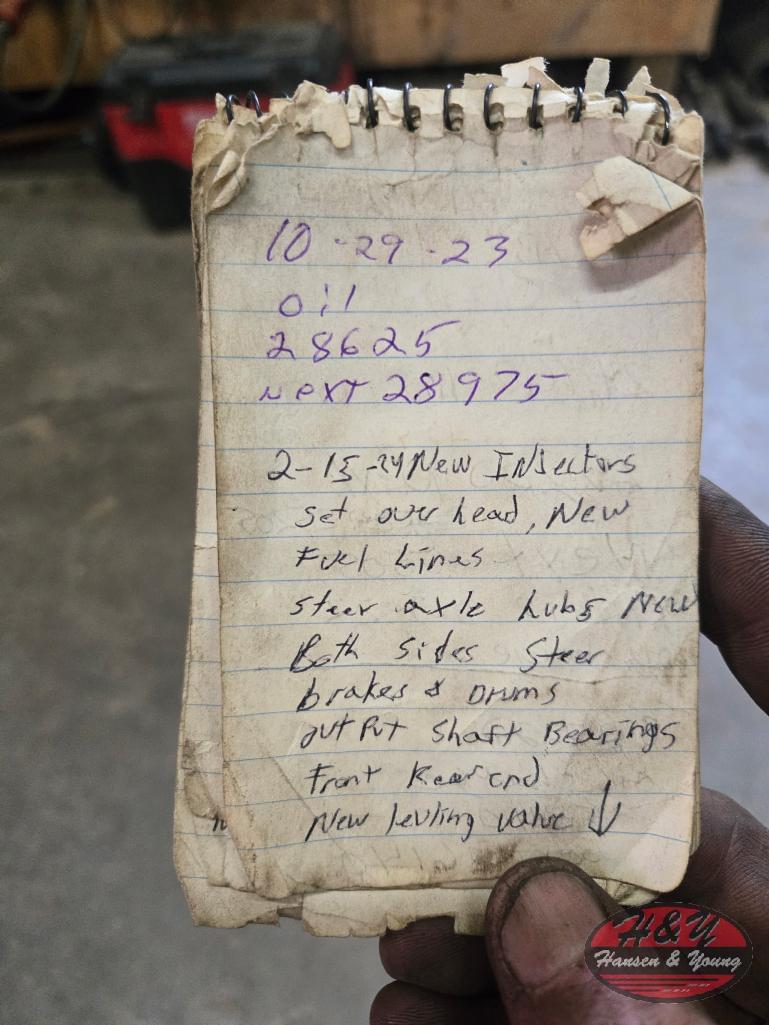 10-29-23
oil
28625
Next 28975
2-15-24 New Injectors
set over head, New
Fuel Lines
steer axle hubs New
Both sides Steer
brakes & Drums
out Put shaft Bearings
Front Rear end
New levling valve ↓
H&Y
Hansen & Young